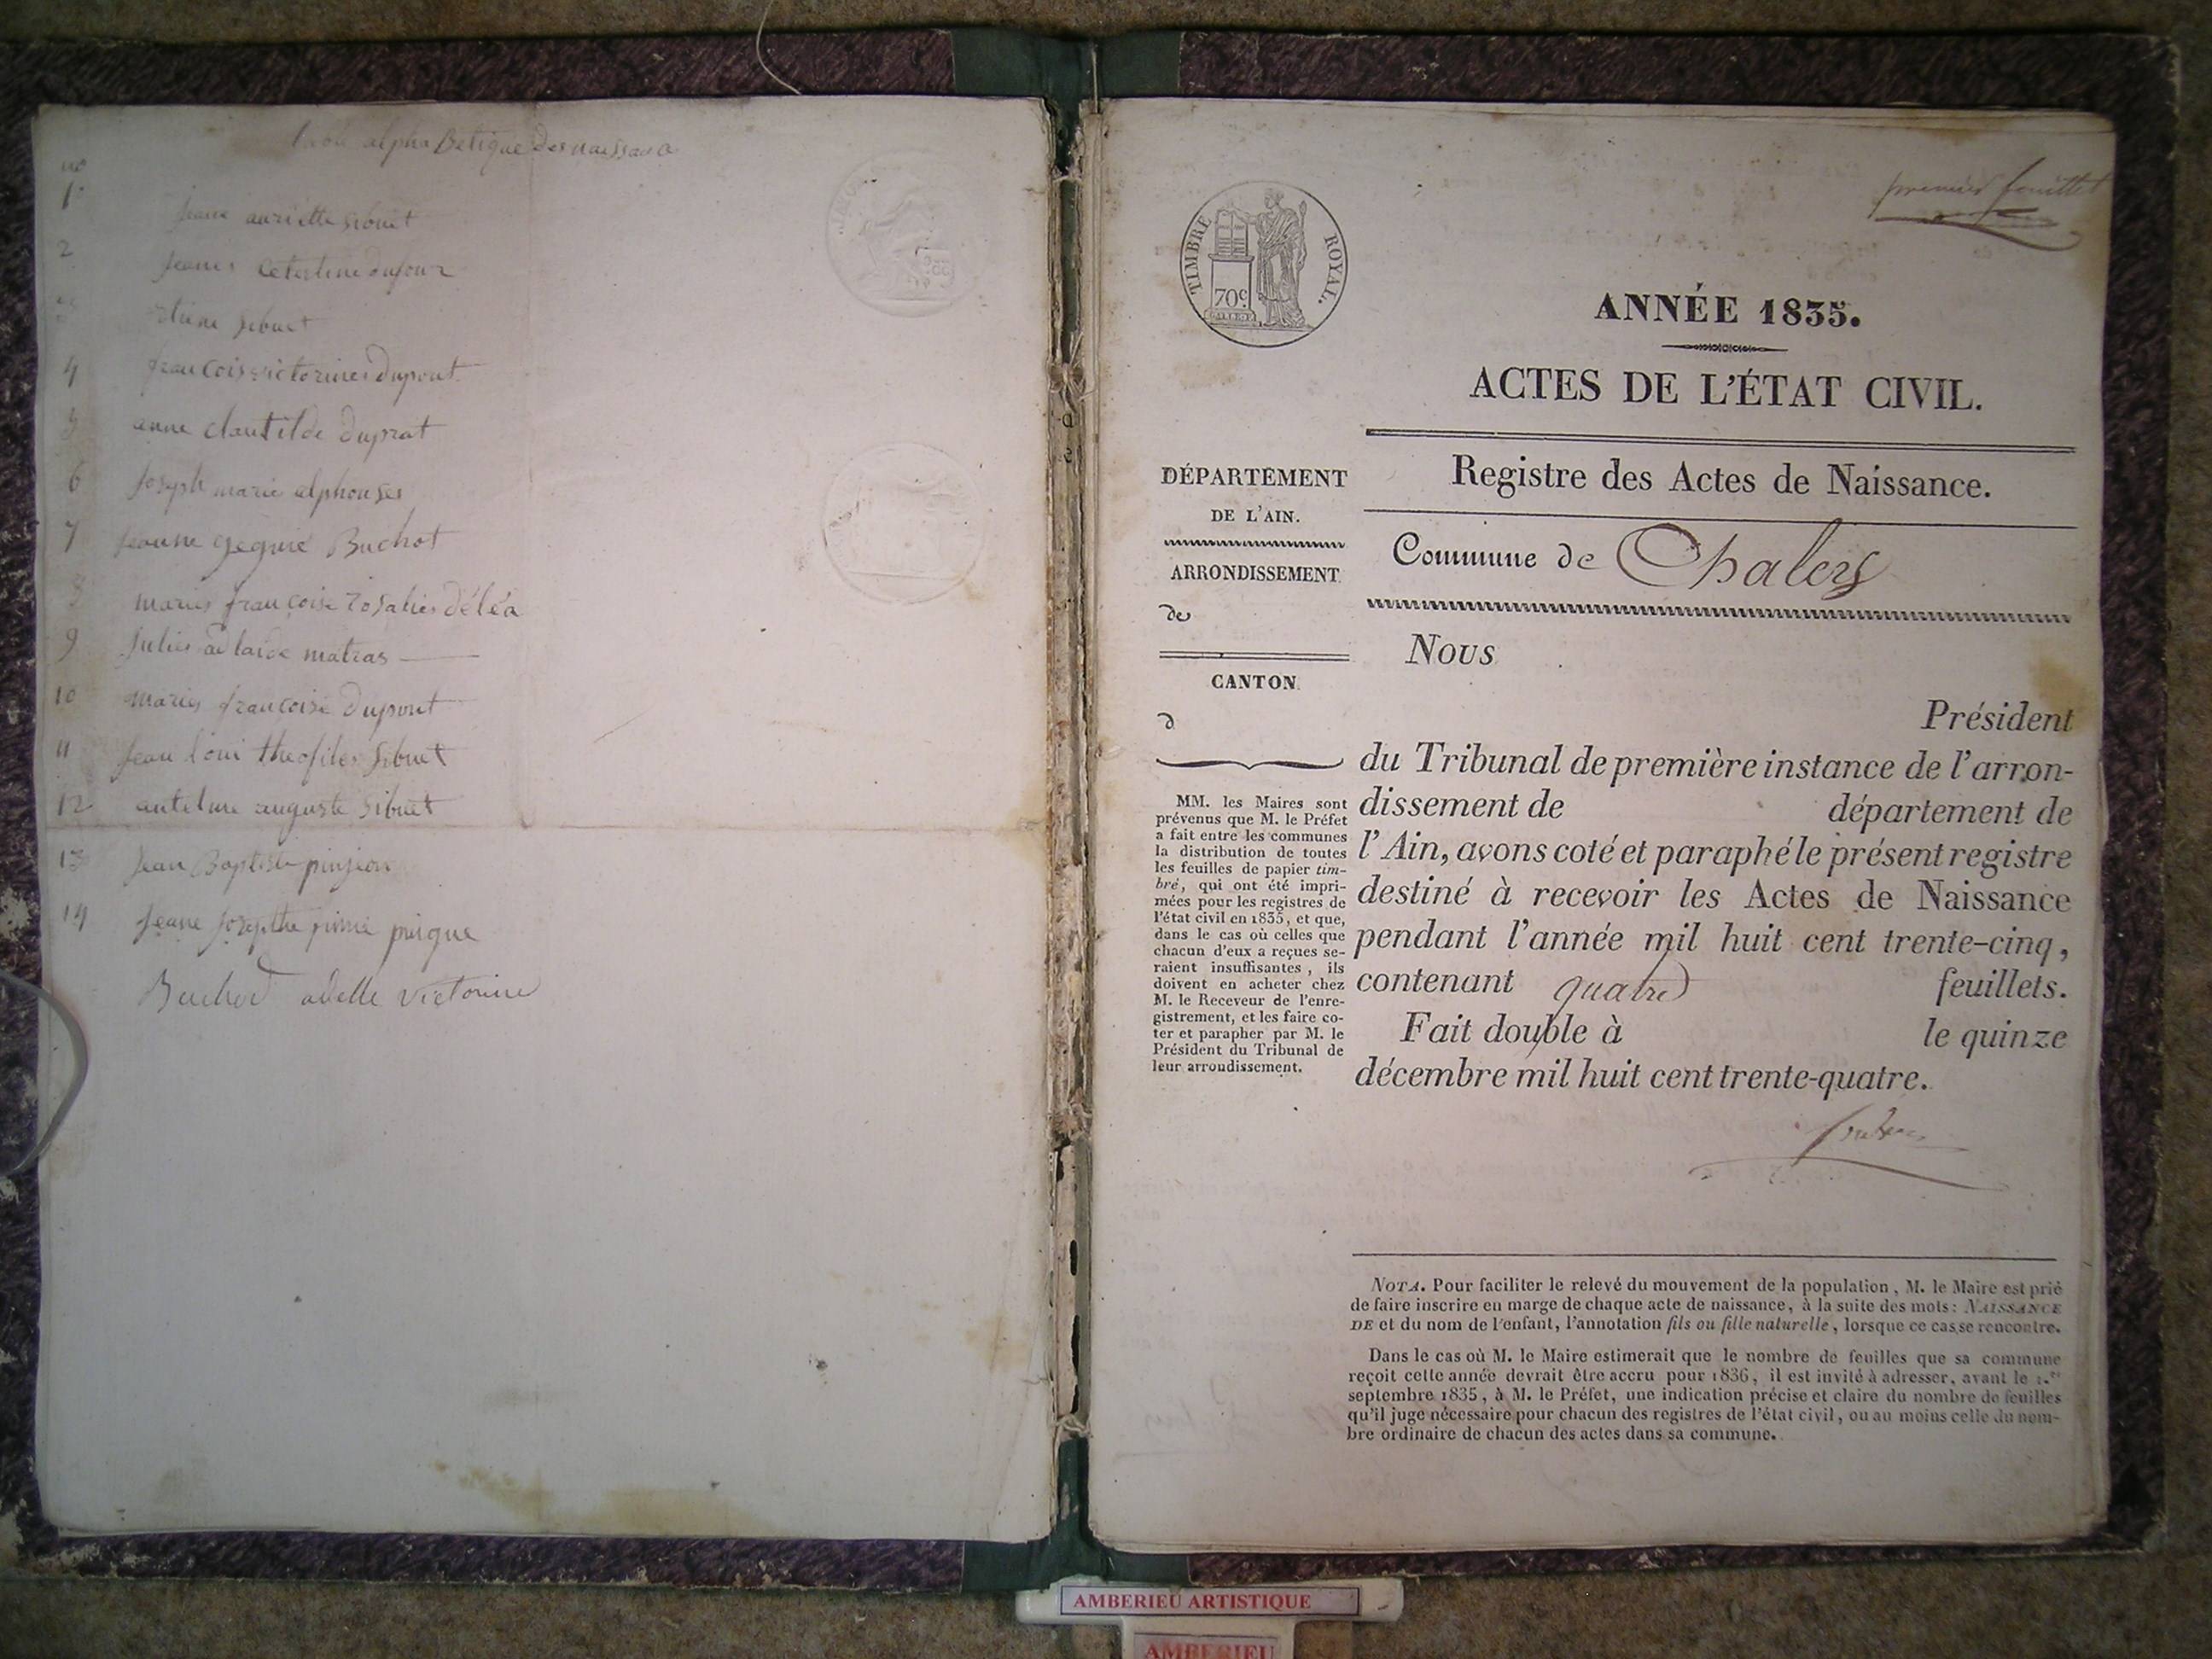 alpha Betique des naissance
no
1
jeane auriette sibuet
2
jeanes celestine dufour
3
etiene sibuet
4
francois victorines dupont
5
anne clautilde duprat
6
Joseph maries alphonses
7
jeanne Buchot
8
maries francoise rosalies déléa
9
Julies adlaide matras
10
maries francoise Dupont
11
Jean loui theofiles Sibuet
12
antelme auguste Sibuet
13
Jean Baptiste pinjeon
14
jeane
adelle victorine
premier feuillet
TIMBRE ROYAL.
70c
ANNÉE 1835.
ACTES DE L'ÉTAT CIVIL.
Registre des Actes de Naissance.
Commune de Chaley
DÉPARTEMENT
DE L'AIN.
ARRONDISSEMENT
de
CANTON
d
MM. les Maires sont
prévenus que M. le Préfet
a fait entre les communes
la distribution de toutes
les feuilles de papier tim-
bré, qui ont été impri-
mées pour les registres de
l'état civil en 1835, et que,
dans le cas où celles que
chacun d'eux a reçues se-
raient insuffisantes, ils
doivent en acheter chez
M. le Receveur de l'enre-
gistrement, et les faire co-
ter et parapher par M. le
Président du Tribunal de
leur arrondissement.
Nous
Président
du Tribunal de première instance de l'arron-
dissement de département de
l'Ain, avons coté et paraphé le présent registre
destiné à recevoir les Actes de Naissance
pendant l'année mil huit cent trente-cinq,
contenant quatre feuillets.
Fait double à le quinze
décembre mil huit cent trente-quatre.
NOTA. Pour faciliter le relevé du mouvement de la population, M. le Maire est prié
de faire inscrire en marge de chaque acte de naissance, à la suite des mots: NAISSANCE
DE et du nom de l'enfant, l'annotation fils ou fille naturelle, lorsque ce cas se rencontre.
Dans le cas où M. le Maire estimerait que le nombre de feuilles que sa commune
reçoit cette année devrait être accru pour 1836, il est invité à adresser, avant le 1.er
septembre 1835, à M. le Préfet, une indication précise et claire du nombre de feuilles
qu'il juge nécessaire pour chacun des registres de l'état civil, ou au moins celle du nom-
bre ordinaire de chacun des actes dans sa commune.
AMBERIEU ARTISTIQUE
AMBERIEU